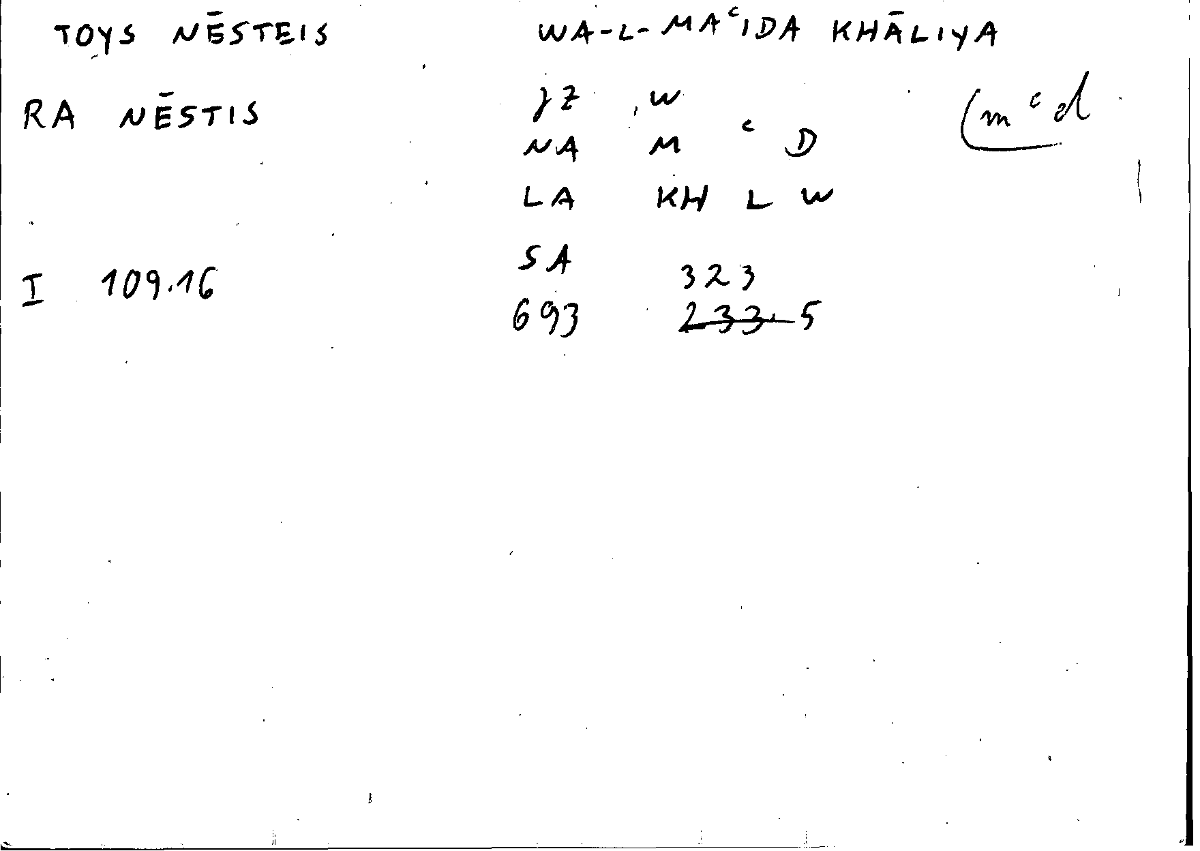 TOYS NĒSTEIS WA-L-MAʿIDA KHĀLIYA
RA NĒSTIS JZ W (mʿd
NA M ʿ D
LA KH L W
SA
I 109.16 323
693 233. 5